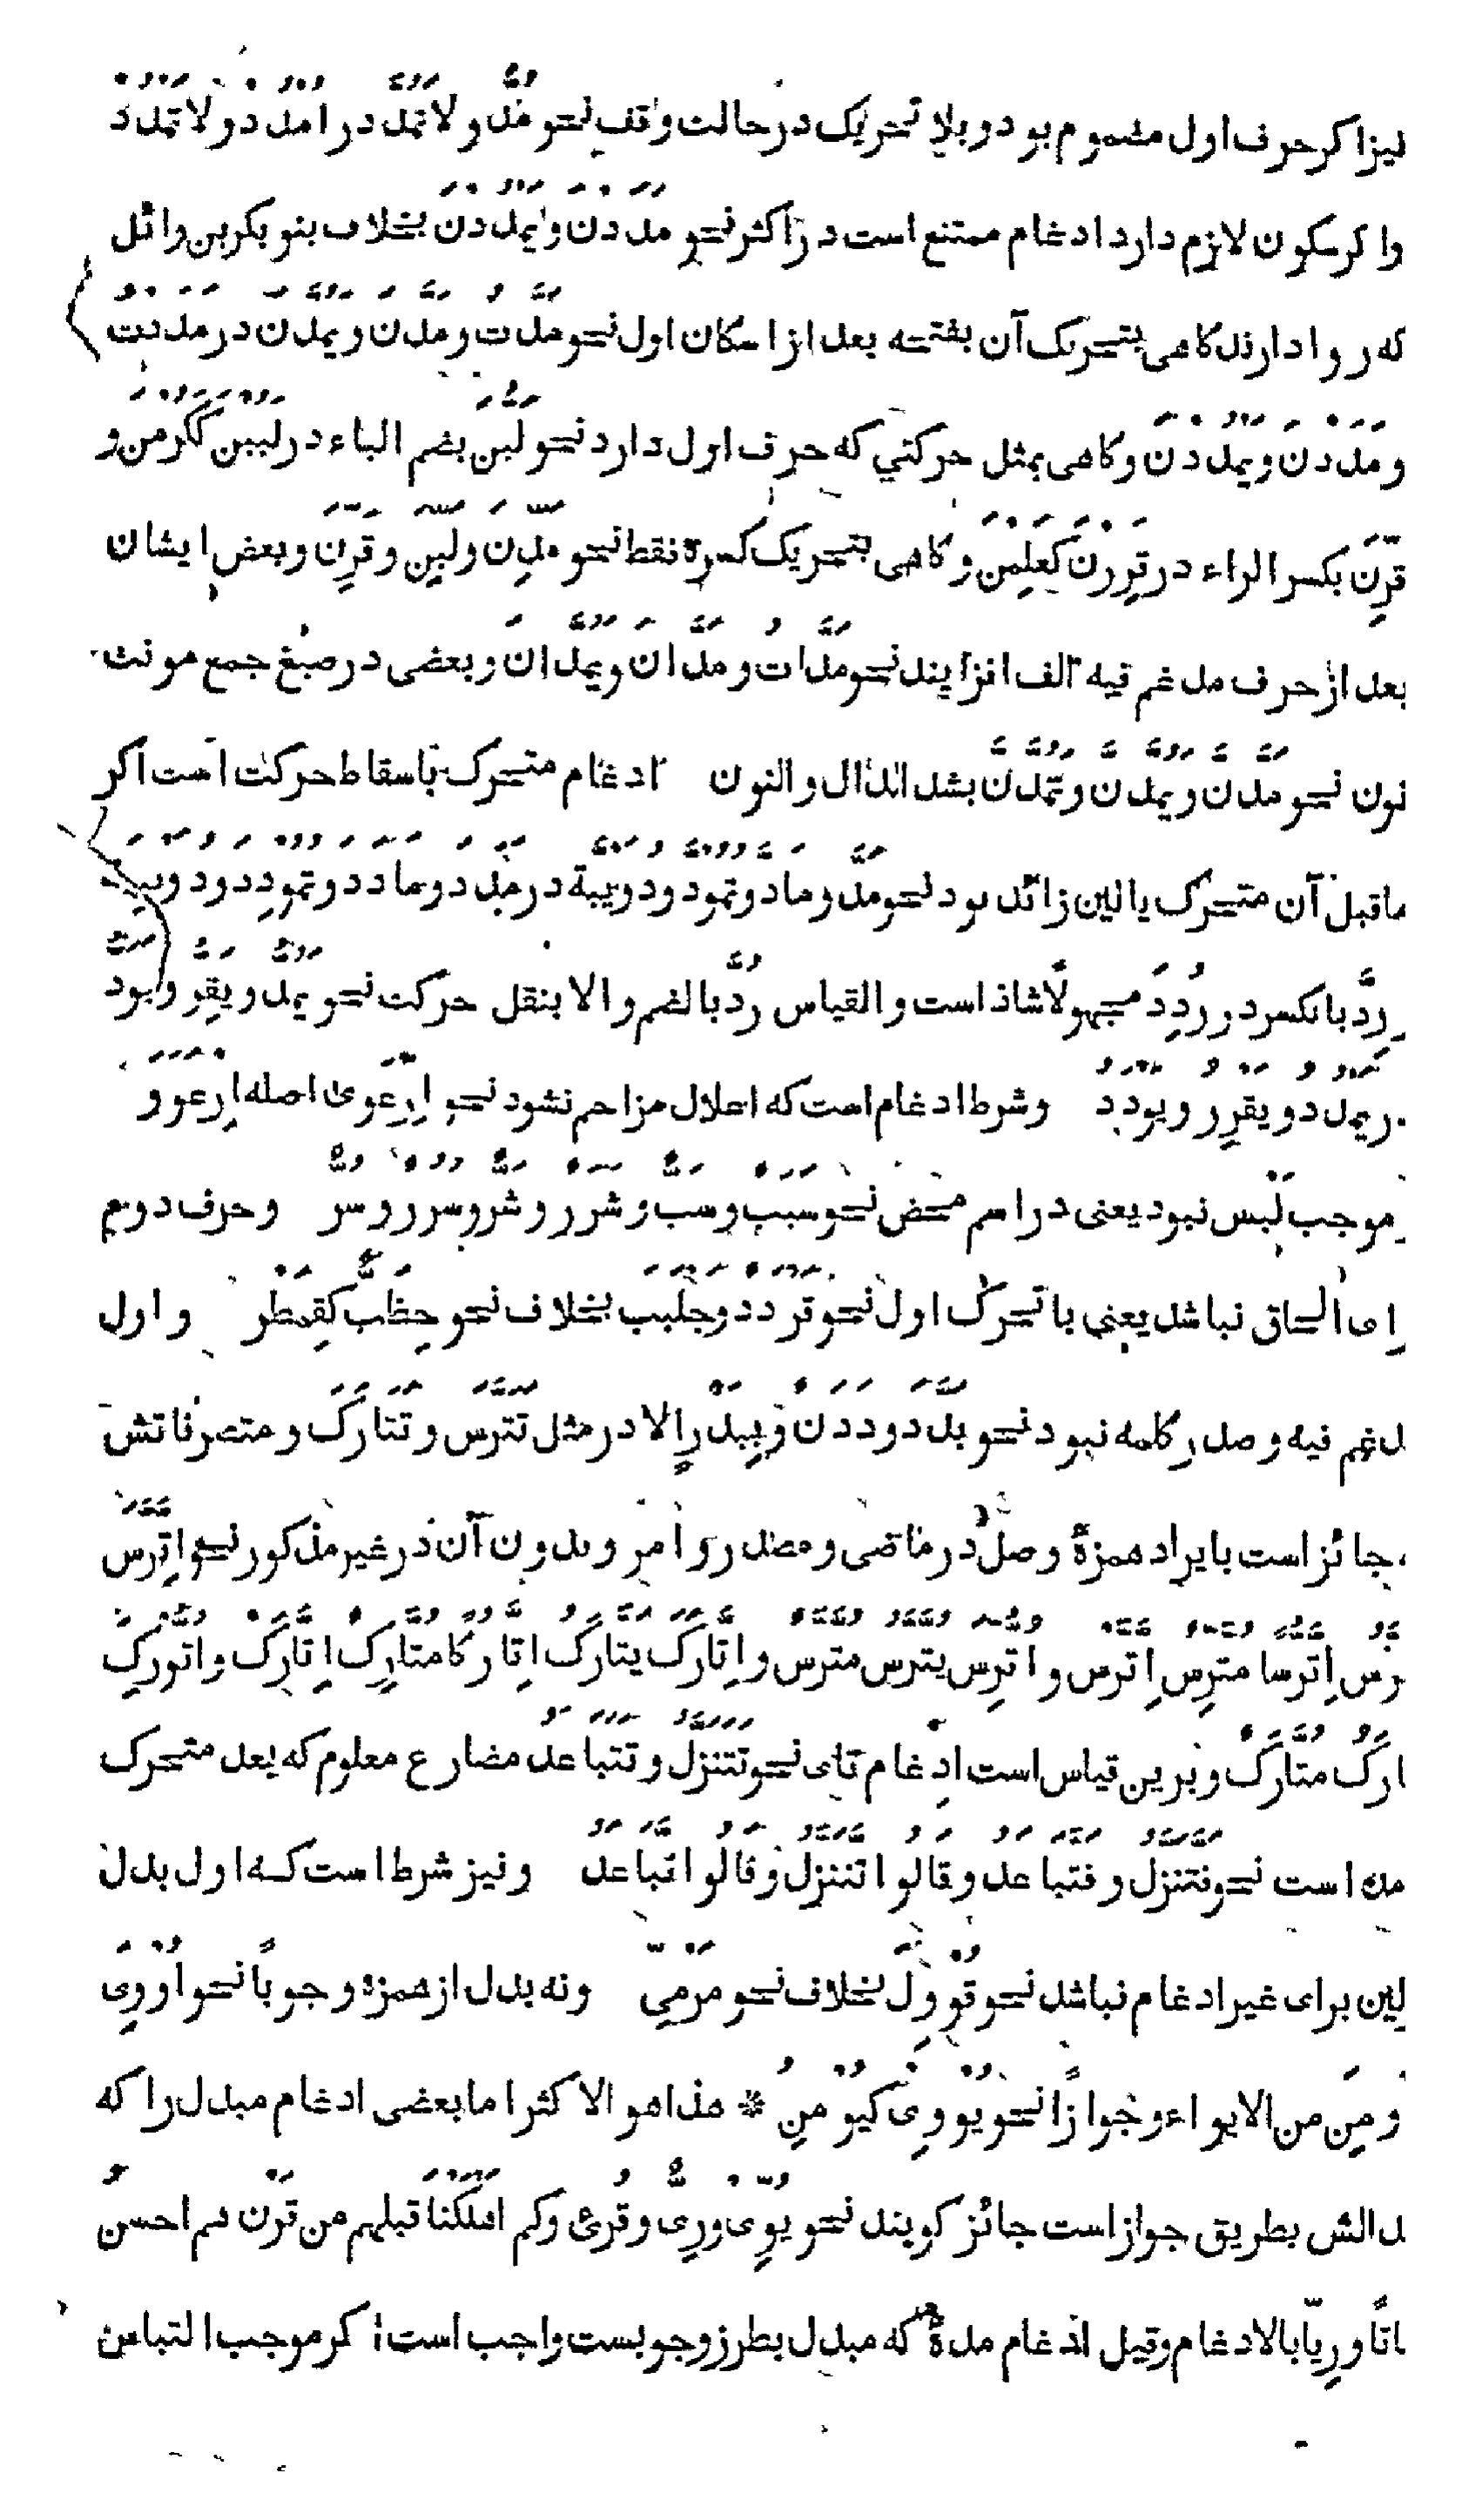 نیزا کر حرف اول مضموم بود و بلا تحریک در حالت وقف نحو مُدُّ و لاتَمُدُّ در اُمْدُدْ و لاتَمْدُدْ
وا کر سکون لازم دارد ادغام ممتنع است در اکثر نحو مَدَدْنَ و یَمْدُدْنَ بخلاف بنو بکر بن وائل
که روا دارند کاهی بتحریک آن بفتحه بعد از اسکان اول نحو مَدَّتُ و مَدَّنَ و یَمُدَّنَ در مَدَدْتُ
و مَدَدْنَ و یَمْدُدْنَ و کاهی بمثل حرکتی که حرف اول دارد نحو لَبُّنَ بضم الباء در لَبُبْنَ کَکَرُمْنَ و
قَرِّنَ بکسر الراء در قَرِرْنَ کَعَلِمْنَ و کاهی بتحریک کسره فقط نحو مَدِّنَ و لَبِّنَ و قَرِّنَ و بعض ایشان
بعد از حرف مدغم فیه الف افزایند نحو مَدَّاتُ و مَدَّانَ و یَمُدَّانَ و بعضی در صیغ جمع مونث
نون نحو مَدَّنَّ و یَمُدَّنَّ و تَمُدَّنَّ بشد الدال و النون ادغام متحرک باسقاط حرکت است اکر
ماقبل آن متحرک یا لین زائد بود نحو مَدَّ و مادَّ و تُمُودَّ و دُوَیْبَّة در مَدَدَ و مادَدَ و تُمُودِدَ و دُوَیْبِبَة
رِدَّ بالکسر در رُدِدَ مجهولاً شاذ است و القیاس رُدَّ بالضم و الا بنقل حرکت نحو یَمُدُّ و یَقِرُّ و یَوَدُّ
در یَمْدُدُ و یَقْرِرُ و یَوْدَدُ و شرط ادغام است که اعلال مزاحم نشود نحو اِرْعَوَى اصله اِرْعَوَوَ
موجب لَبس نبود یعنی در اسم محض نحو سَبَبٌ و سَبٌّ و شَرَرٌ و شَرٌّ و سُرُرٌ و سُرٌّ و حرف دوم
رای الحاق نباشد یعنی با تحرک اول نحو تَرْدَدَ و جَلْبَبَ بخلاف نحو حِظَبٌّ کَقِمَطْرٌ و اول
دغم فیه و صدر کلمه نبود نحو بَدَّدَ و دَدَنٌ و بِیَدْرٍ الا در مثل تَتَرَّسَ و تَتَارَکَ و متصرفاتش
جائز است بایراد همزهٔ وصل در ماضی و مصدر و امر و بدون آن در غیر مذکور نحو اِتَّرَّسَ
رَّسُ اِتَّرُّسًا مُتَّرِّسٌ اِتَّرَّسْ و اُتُّرِّسَ یُتَّرَّسُ مُتَّرَّسٌ و اِتَّارَکَ یَتَّارَکُ اِتَّارُکًا مُتَّارِکٌ اِتَّارَکْ و اُتُّورِکَ
ارَکُ مُتَّارَکٌ و برین قیاس است ادغام تای نحو تَتَنَزَّلُ و تَتَبَاعَدُ مضارع معلوم که بعد متحرک
مده است نحو فَتَّنَزَّلُ و فَتَّبَاعَدُ و قالُوا تَّنَزَّلُ و قالُوا تَّبَاعَدُ و نیز شرط است کـه اول بدل
لین برای غیر ادغام نباشد نحو قُوْوِلَ بخلاف نحو مَرْمِيّ و نه بدل از همزه وجوباً نحو اُوْوِیَ
وْمِنَ من الایواء و جوازاً نحو یُوْوِیْ کَیُوْمِنُ * هذا هو الاکثر اما بعضی ادغام مبدل را که
دالش بطریق جواز است جائز کویند نحو یُوِّیْ و رِیَّ و قُرِئَ وکم اهلکنا قبلهم من قَرْنٍ هم احسن
اثاثا و رِیّاً بالادغام وقیل ادغام مدهٔ که مبدل بطرز وجوبست واجب است اکر موجب التباس